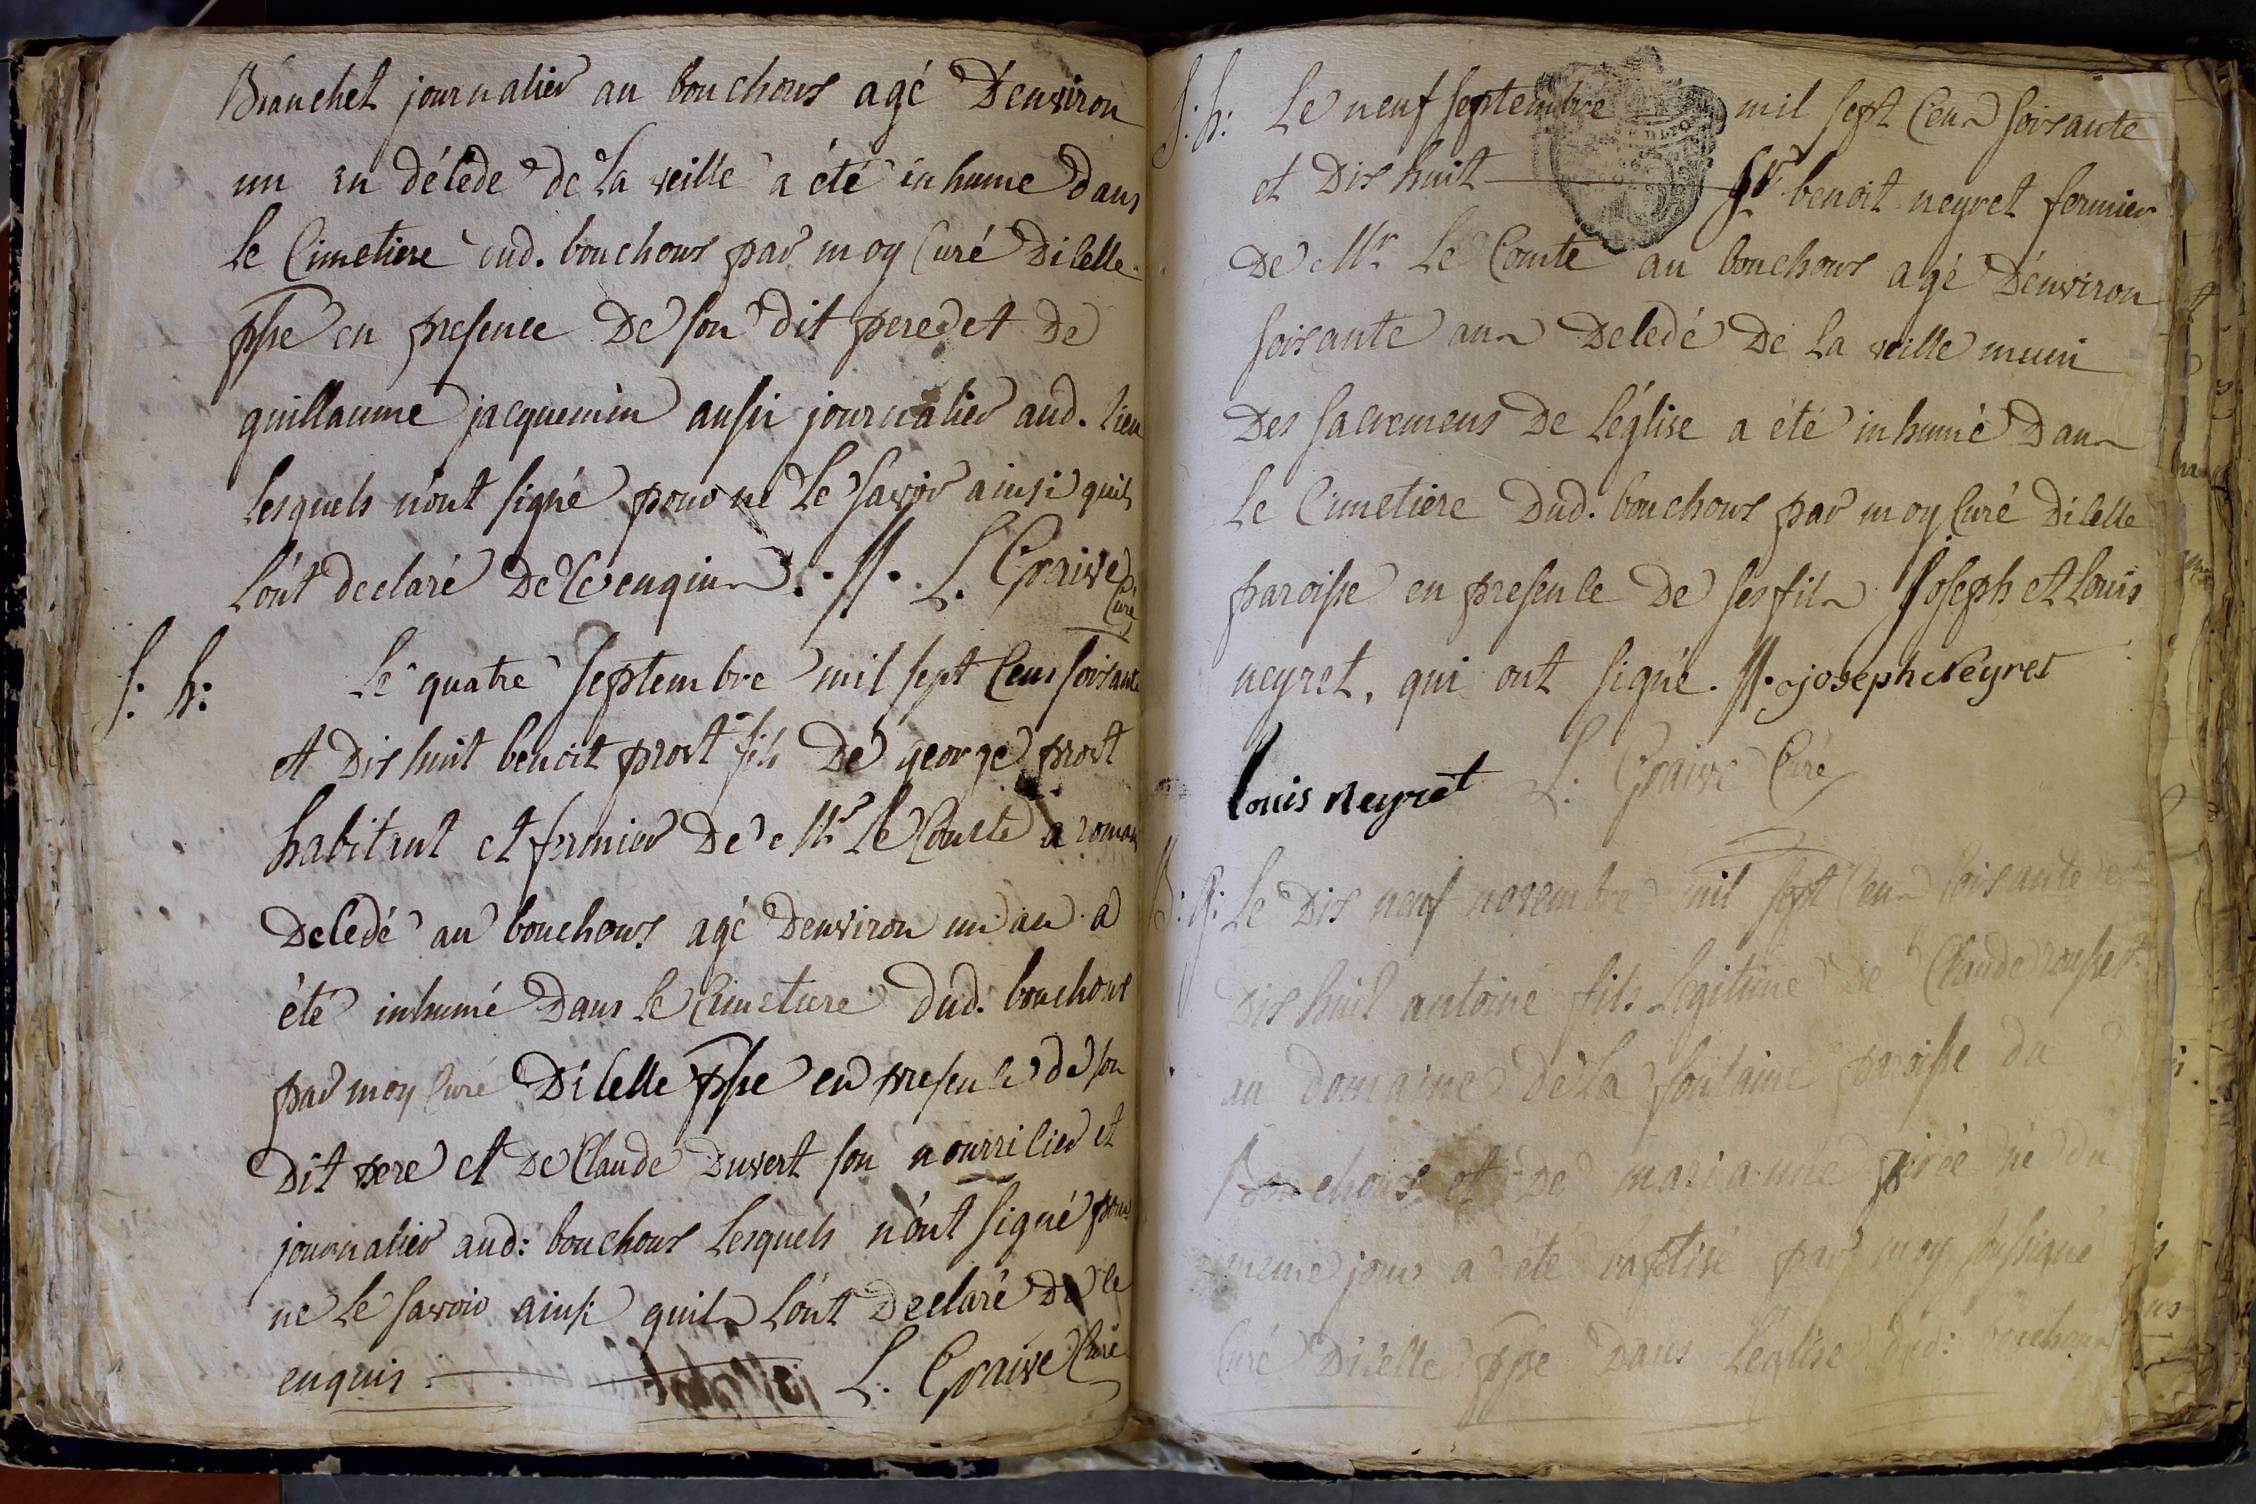 Branchet journalier au bouchoux agé D'environ
un an décédé de la veille a été inhumé dans
le Cimetiere dud. bouchoux par moy Curé Dicelle
ppsse en presence De son dit pere et De
guillaume jacquemin aussi journalier aud. lieu
lesquels n'ont signé pour ne le savoir ainsi quils
l'ont declaré De ce enquis. //. L. Graive
Curé
S: h: Le quatre septembre mil sept Cens soixante
et Dix huit benoit prost fils De george prost
habitant et fermier De Mr le Comte a roman
Decedé au bouchoux agé D'environ un an a
été inhumé Dans le Cimetiere Dud. bouchoux
par moy Curé Dicelle ppsse en presence de son
Dit pere et De Claude Duvert son nourricier et
journalier aud: bouchoux lesquels n'ont signé pour
ne le savoir ainsi quils l'ont Declaré De ce
enquis. L. Graive Curé
S: h: Le neuf septembre mil sept Cens soixante
et Dix huit Sr benoit neyret fermier
De Mr Le Comte au bouchoux agé D'environ
soixante ans Decedé De la veille muni
Des sacremens De l'église a été inhumé Dans
le Cimetiere Dud. bouchoux par moy Curé Dicelle
paroisse en presence De ses fils Joseph et louis
neyret, qui ont signé. //. joseph Neyret
Louis Neyret L: Graive Curé
Le Dix neuf novembre mil sept Cens soixante et
Dix huit antoine fils legitime De Claude rousset
au Domaine De la fontaine paroisse du
Bouchoux et De marianne née du
meme jour a été baptisé par moy soussigné
Curé Dicelle ppsse Dans l'église dud: bouchoux